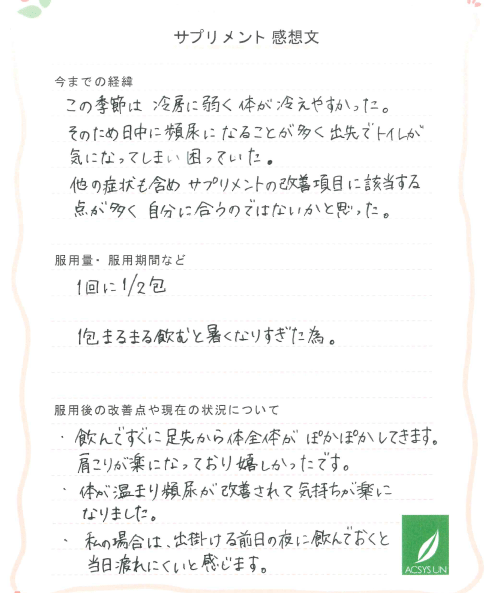 サプリメント 感想文
今までの経緯
この季節は 冷房に弱く 体が冷えやすかった。
そのため日中に頻尿になることが多く出先でトイレが
気になってしまい困っていた。
他の症状も含め サプリメントの改善項目に該当する
点が多く 自分に合うのではないかと思った。
服用量・服用期間など
1回に1/2包
1包まるまる飲むと暑くなりすぎた為。
服用後の改善点や現在の状況について
・飲んですぐに足先から体全体が ぽかぽかしてきます。
肩こりが楽になっており嬉しかったです。
・体が温まり頻尿が改善されて気持ちが楽に
なりました。
・私の場合は、出掛ける前日の夜に飲んでおくと
当日疲れにくいと感じます。
ACSYS UN